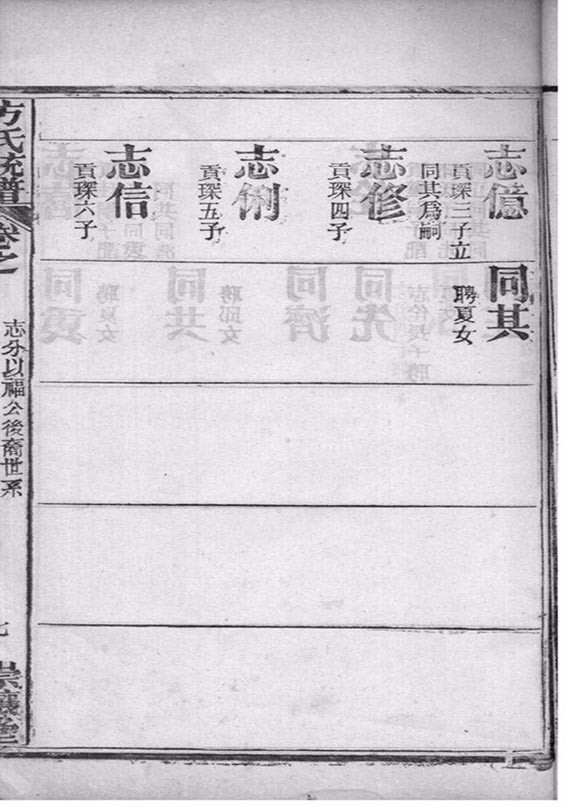 志億
貢琛三子立
同其為嗣
志修
貢琛四子
志俐
貢琛五子
志信
貢琛六子
同其
聘夏女
方氏統譜
卷之
志分以福公後裔世系
七
崇讓堂